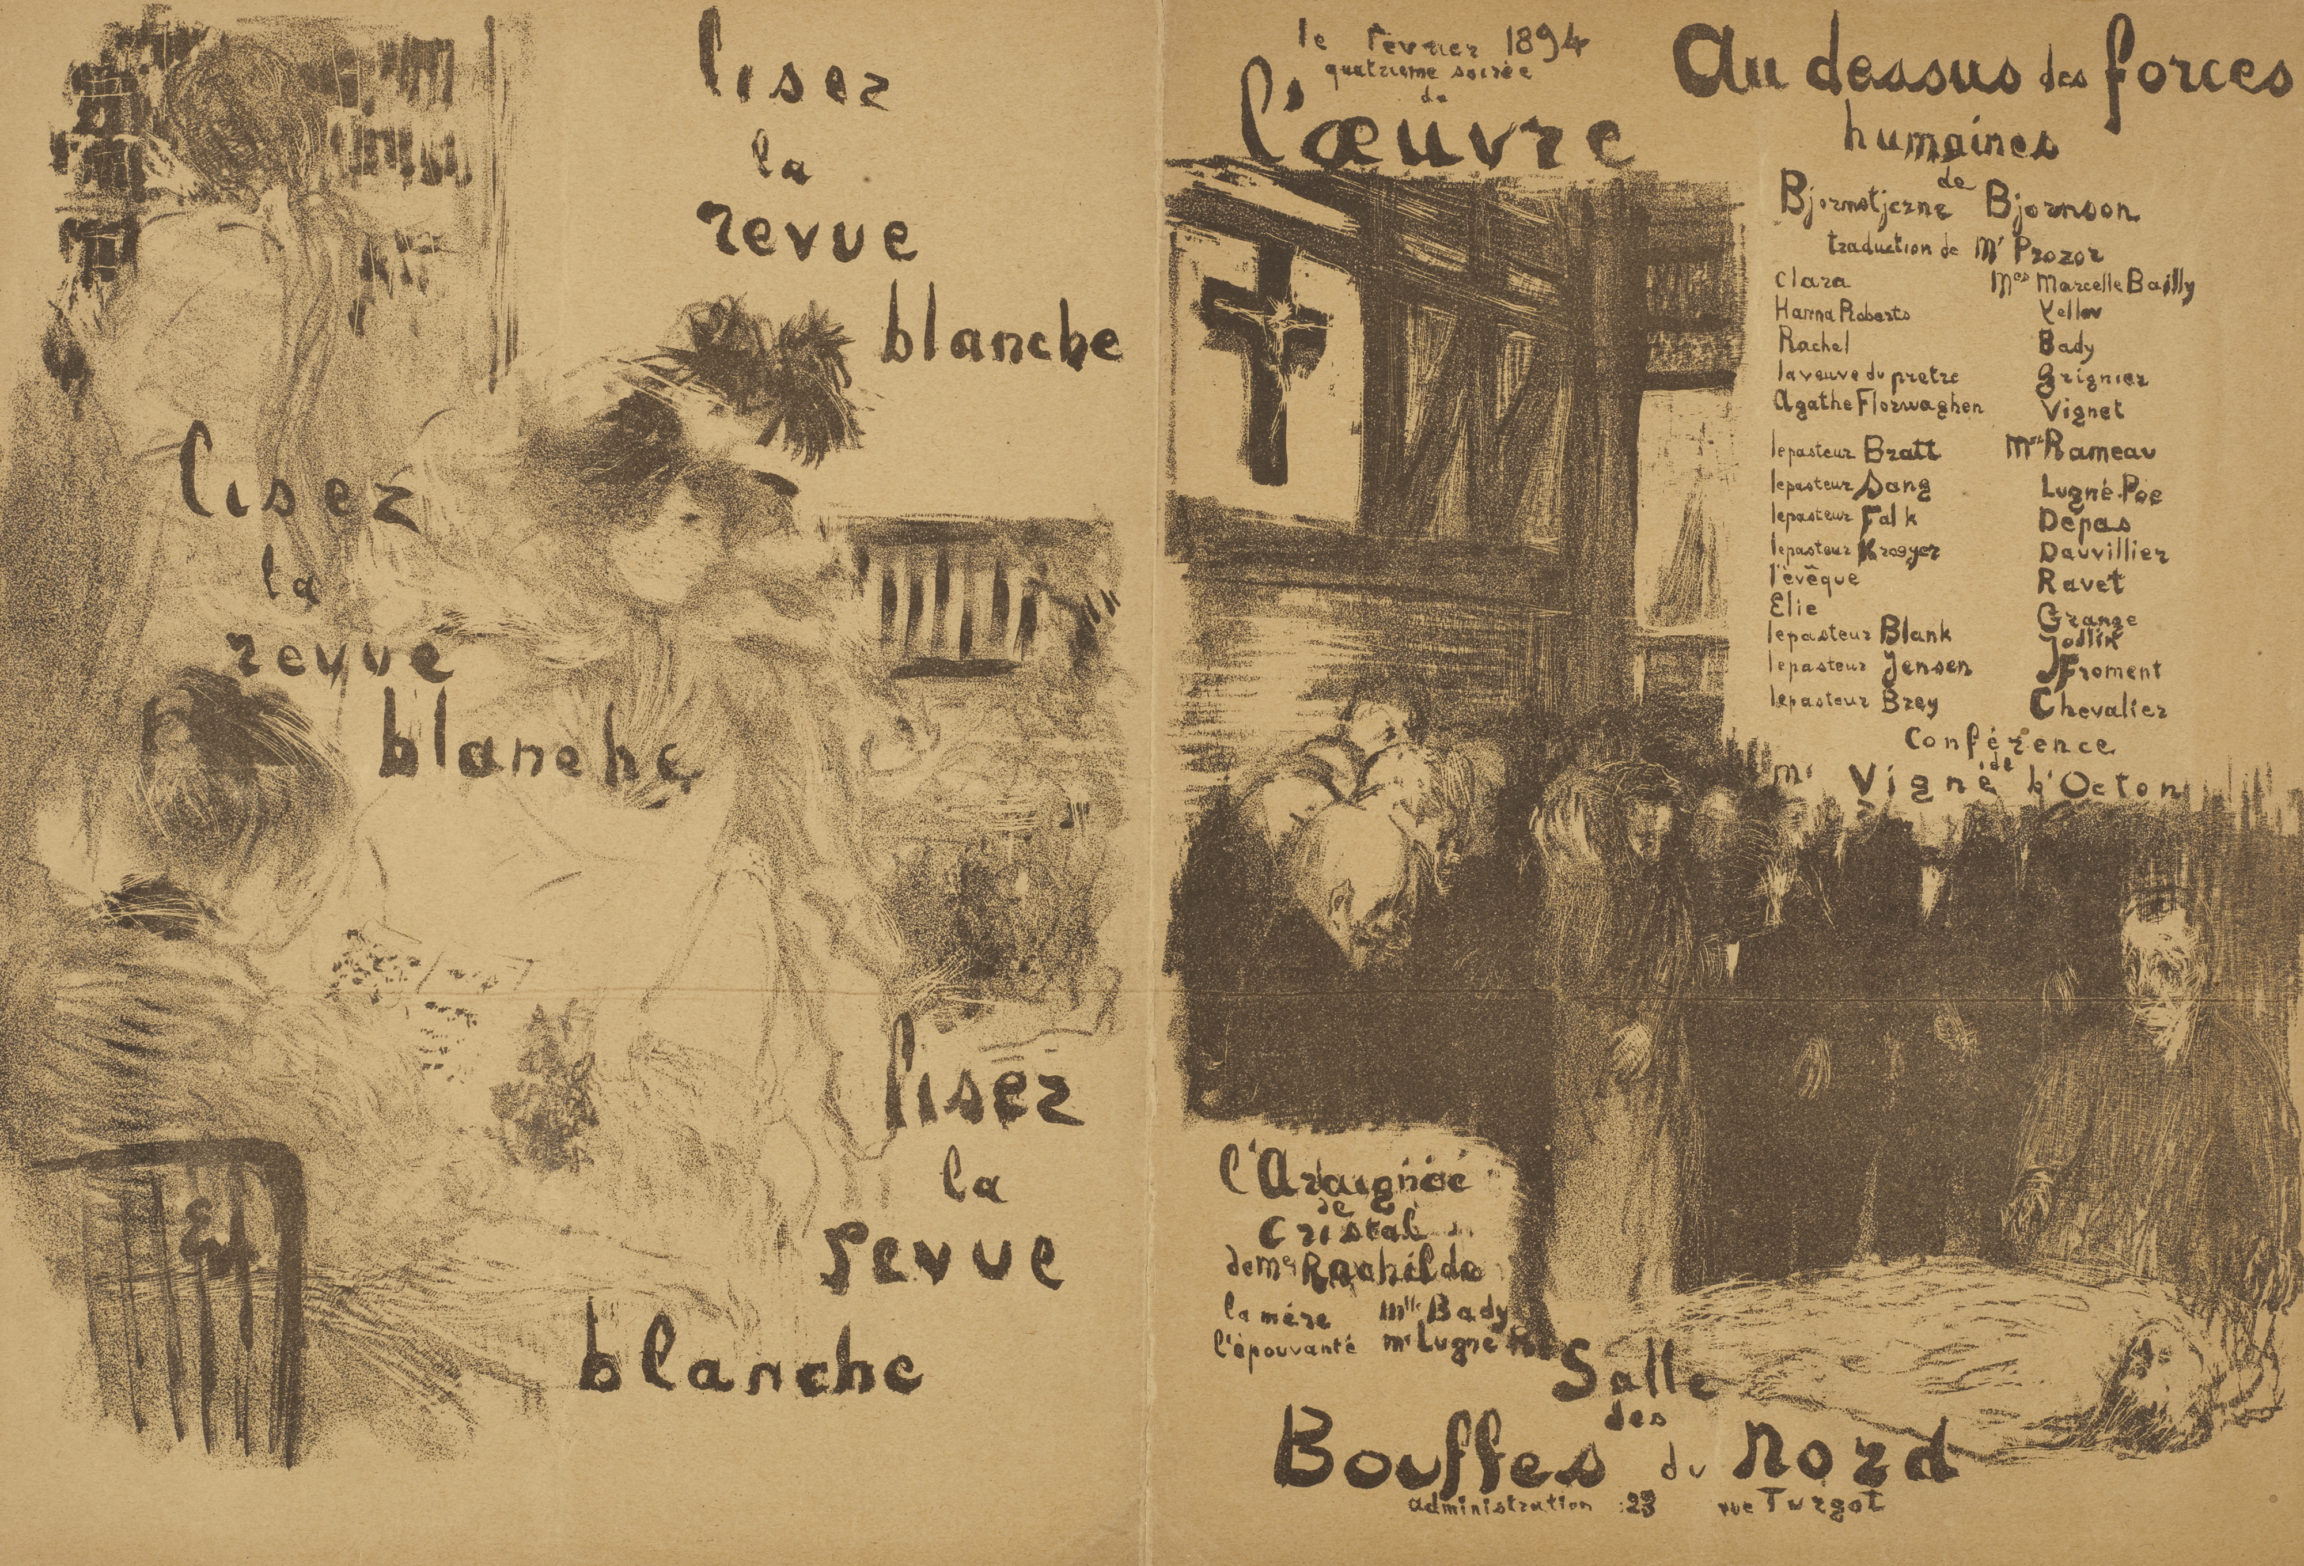 lisez
la
revue
blanche
lisez
la
revue
blanche
lisez
la
revue
blanche
le fevrier 1894
quatrieme soirée
de
l'œuvre
Au dessus des forces
humaines
de
Bjornstjerne Bjornson
traduction de Mr Prozor
Clara Mes Marcelle Bailly
Hanna Roberts Yellov
Rachel Bady
la veuve du pretre Grignier
Agathe Florwaghen Vignet
le pasteur Bratt Mrs Rameau
le pasteur Sang Lugné-Poe
le pasteur Falk Dépas
le pasteur Kroeyer Dauvillier
l'évêque Ravet
Elie Grange
le pasteur Blank Jodlik
le pasteur Jensen Froment
le pasteur Brey Chevalier
Conférence
de
Mr Vigné d'Octon
l'Araignée
de
Cristal
de Me Rachilde
la mère Mlle Bady
l'épouvanté Mr Lugné Poe
Salle
des
Bouffes du Nord
administration : 23 rue Turgot